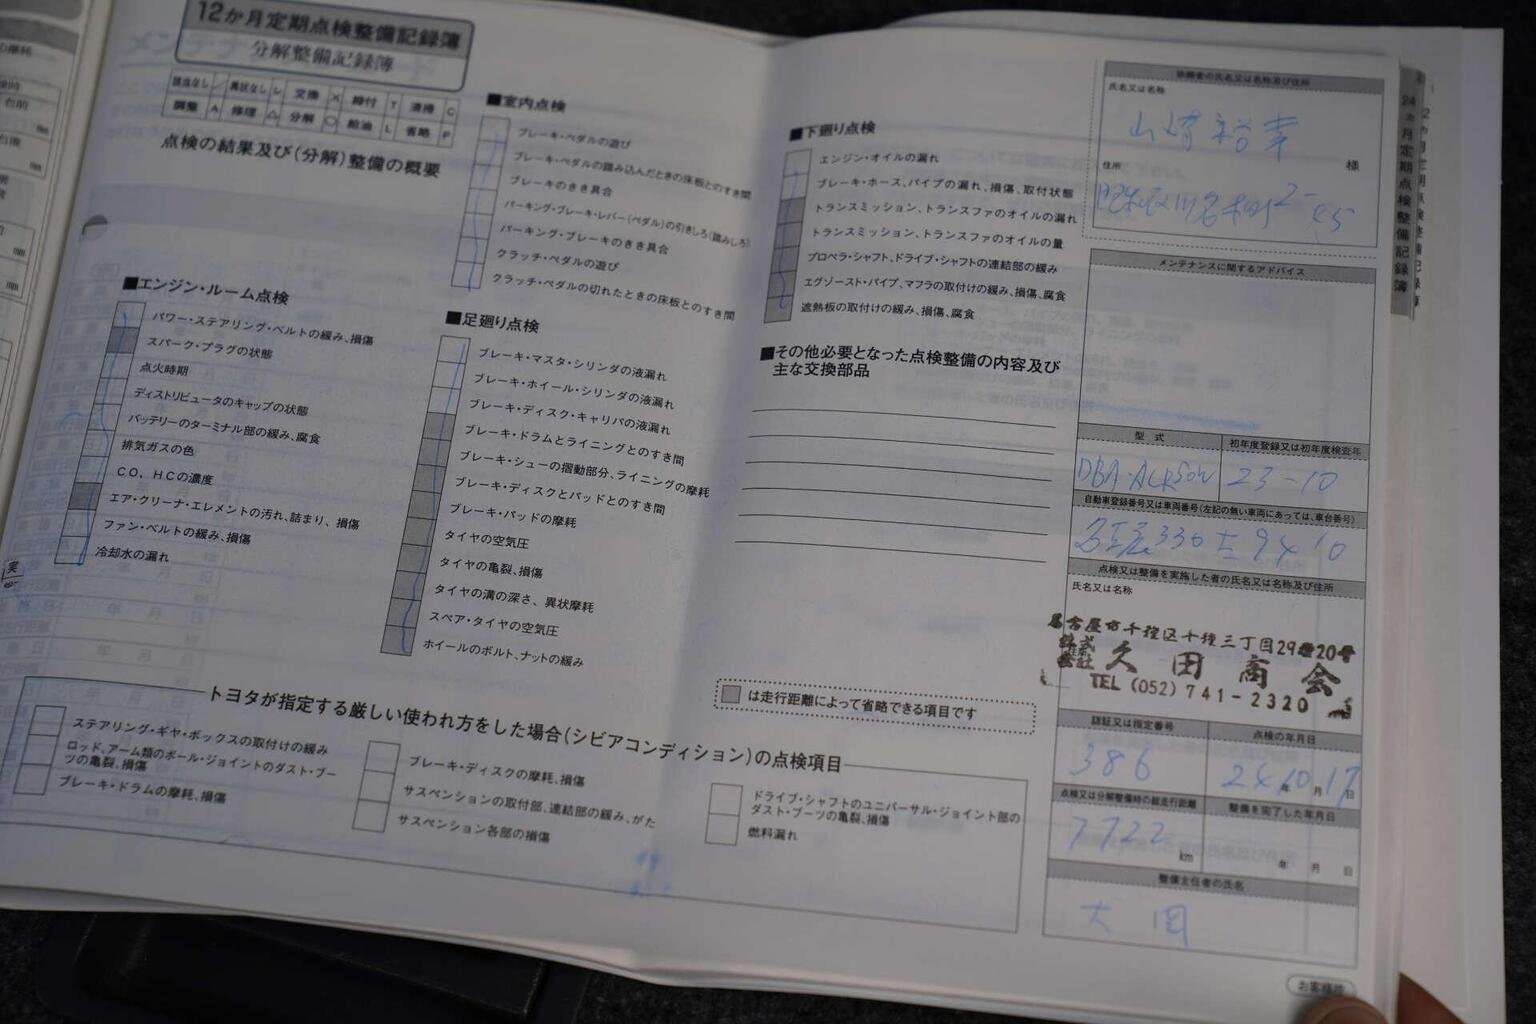 12か月定期点検整備記録簿
分解整備記録簿
該当なし ／ 異状なし レ 交換 × 締付 T 清掃 C
調整 A 修理 △ 分解 ○ 給油 L 省略 P
点検の結果及び(分解)整備の概要
■エンジン・ルーム点検
パワー・ステアリング・ベルトの緩み、損傷
スパーク・プラグの状態
点火時期
ディストリビュータのキャップの状態
バッテリーのターミナル部の緩み、腐食
排気ガスの色
CO、HCの濃度
エア・クリーナ・エレメントの汚れ、詰まり、損傷
ファン・ベルトの緩み、損傷
冷却水の漏れ
■室内点検
ブレーキ・ペダルの遊び
ブレーキ・ペダルの踏み込んだときの床板とのすき間
ブレーキのきき具合
パーキング・ブレーキ・レバー(ペダル)の引きしろ(踏みしろ)
パーキング・ブレーキのきき具合
クラッチ・ペダルの遊び
クラッチ・ペダルの切れたときの床板とのすき間
■足廻り点検
ブレーキ・マスタ・シリンダの液漏れ
ブレーキ・ホイール・シリンダの液漏れ
ブレーキ・ディスク・キャリパの液漏れ
ブレーキ・ドラムとライニングとのすき間
ブレーキ・シューの摺動部分、ライニングの摩耗
ブレーキ・ディスクとパッドとのすき間
ブレーキ・パッドの摩耗
タイヤの空気圧
タイヤの亀裂、損傷
タイヤの溝の深さ、異状摩耗
スペア・タイヤの空気圧
ホイールのボルト、ナットの緩み
■下廻り点検
エンジン・オイルの漏れ
ブレーキ・ホース、パイプの漏れ、損傷、取付状態
トランスミッション、トランスファのオイルの漏れ
トランスミッション、トランスファのオイルの量
プロペラ・シャフト、ドライブ・シャフトの連結部の緩み
エグゾースト・パイプ、マフラの取付けの緩み、損傷、腐食
遮熱板の取付けの緩み、損傷、腐食
■その他必要となった点検整備の内容及び
主な交換部品
は走行距離によって省略できる項目です
トヨタが指定する厳しい使われ方をした場合(シビアコンディション)の点検項目
ステアリング・ギヤ・ボックスの取付けの緩み
ロッド、アーム類のボール・ジョイントのダスト・ブー
ツの亀裂、損傷
ブレーキ・ドラムの摩耗、損傷
ブレーキ・ディスクの摩耗、損傷
サスペンションの取付部、連結部の緩み、がた
サスペンション各部の損傷
ドライブ・シャフトのユニバーサル・ジョイント部の
ダスト・ブーツの亀裂、損傷
燃料漏れ
依頼者の氏名又は名称及び住所
氏名又は名称
山崎裕幸 様
住所
メンテナンスに関するアドバイス
型式 初年度登録又は初年度検査年
23-10
自動車登録番号又は車両番号(左記の無い車両にあっては、車台番号)
名古屋330 9410
点検又は整備を実施した者の氏名又は名称及び住所
氏名又は名称
名古屋市千種区千種三丁目29番20号
株式会社 久田商会
TEL (052) 741-2320
認証又は指定番号 点検の年月日
386 24年10月17日
点検又は分解整備時の総走行距離 整備を完了した年月日
7722 km 年 月 日
整備主任者の氏名
大岡
お客様控
24か月定期点検整備記録簿